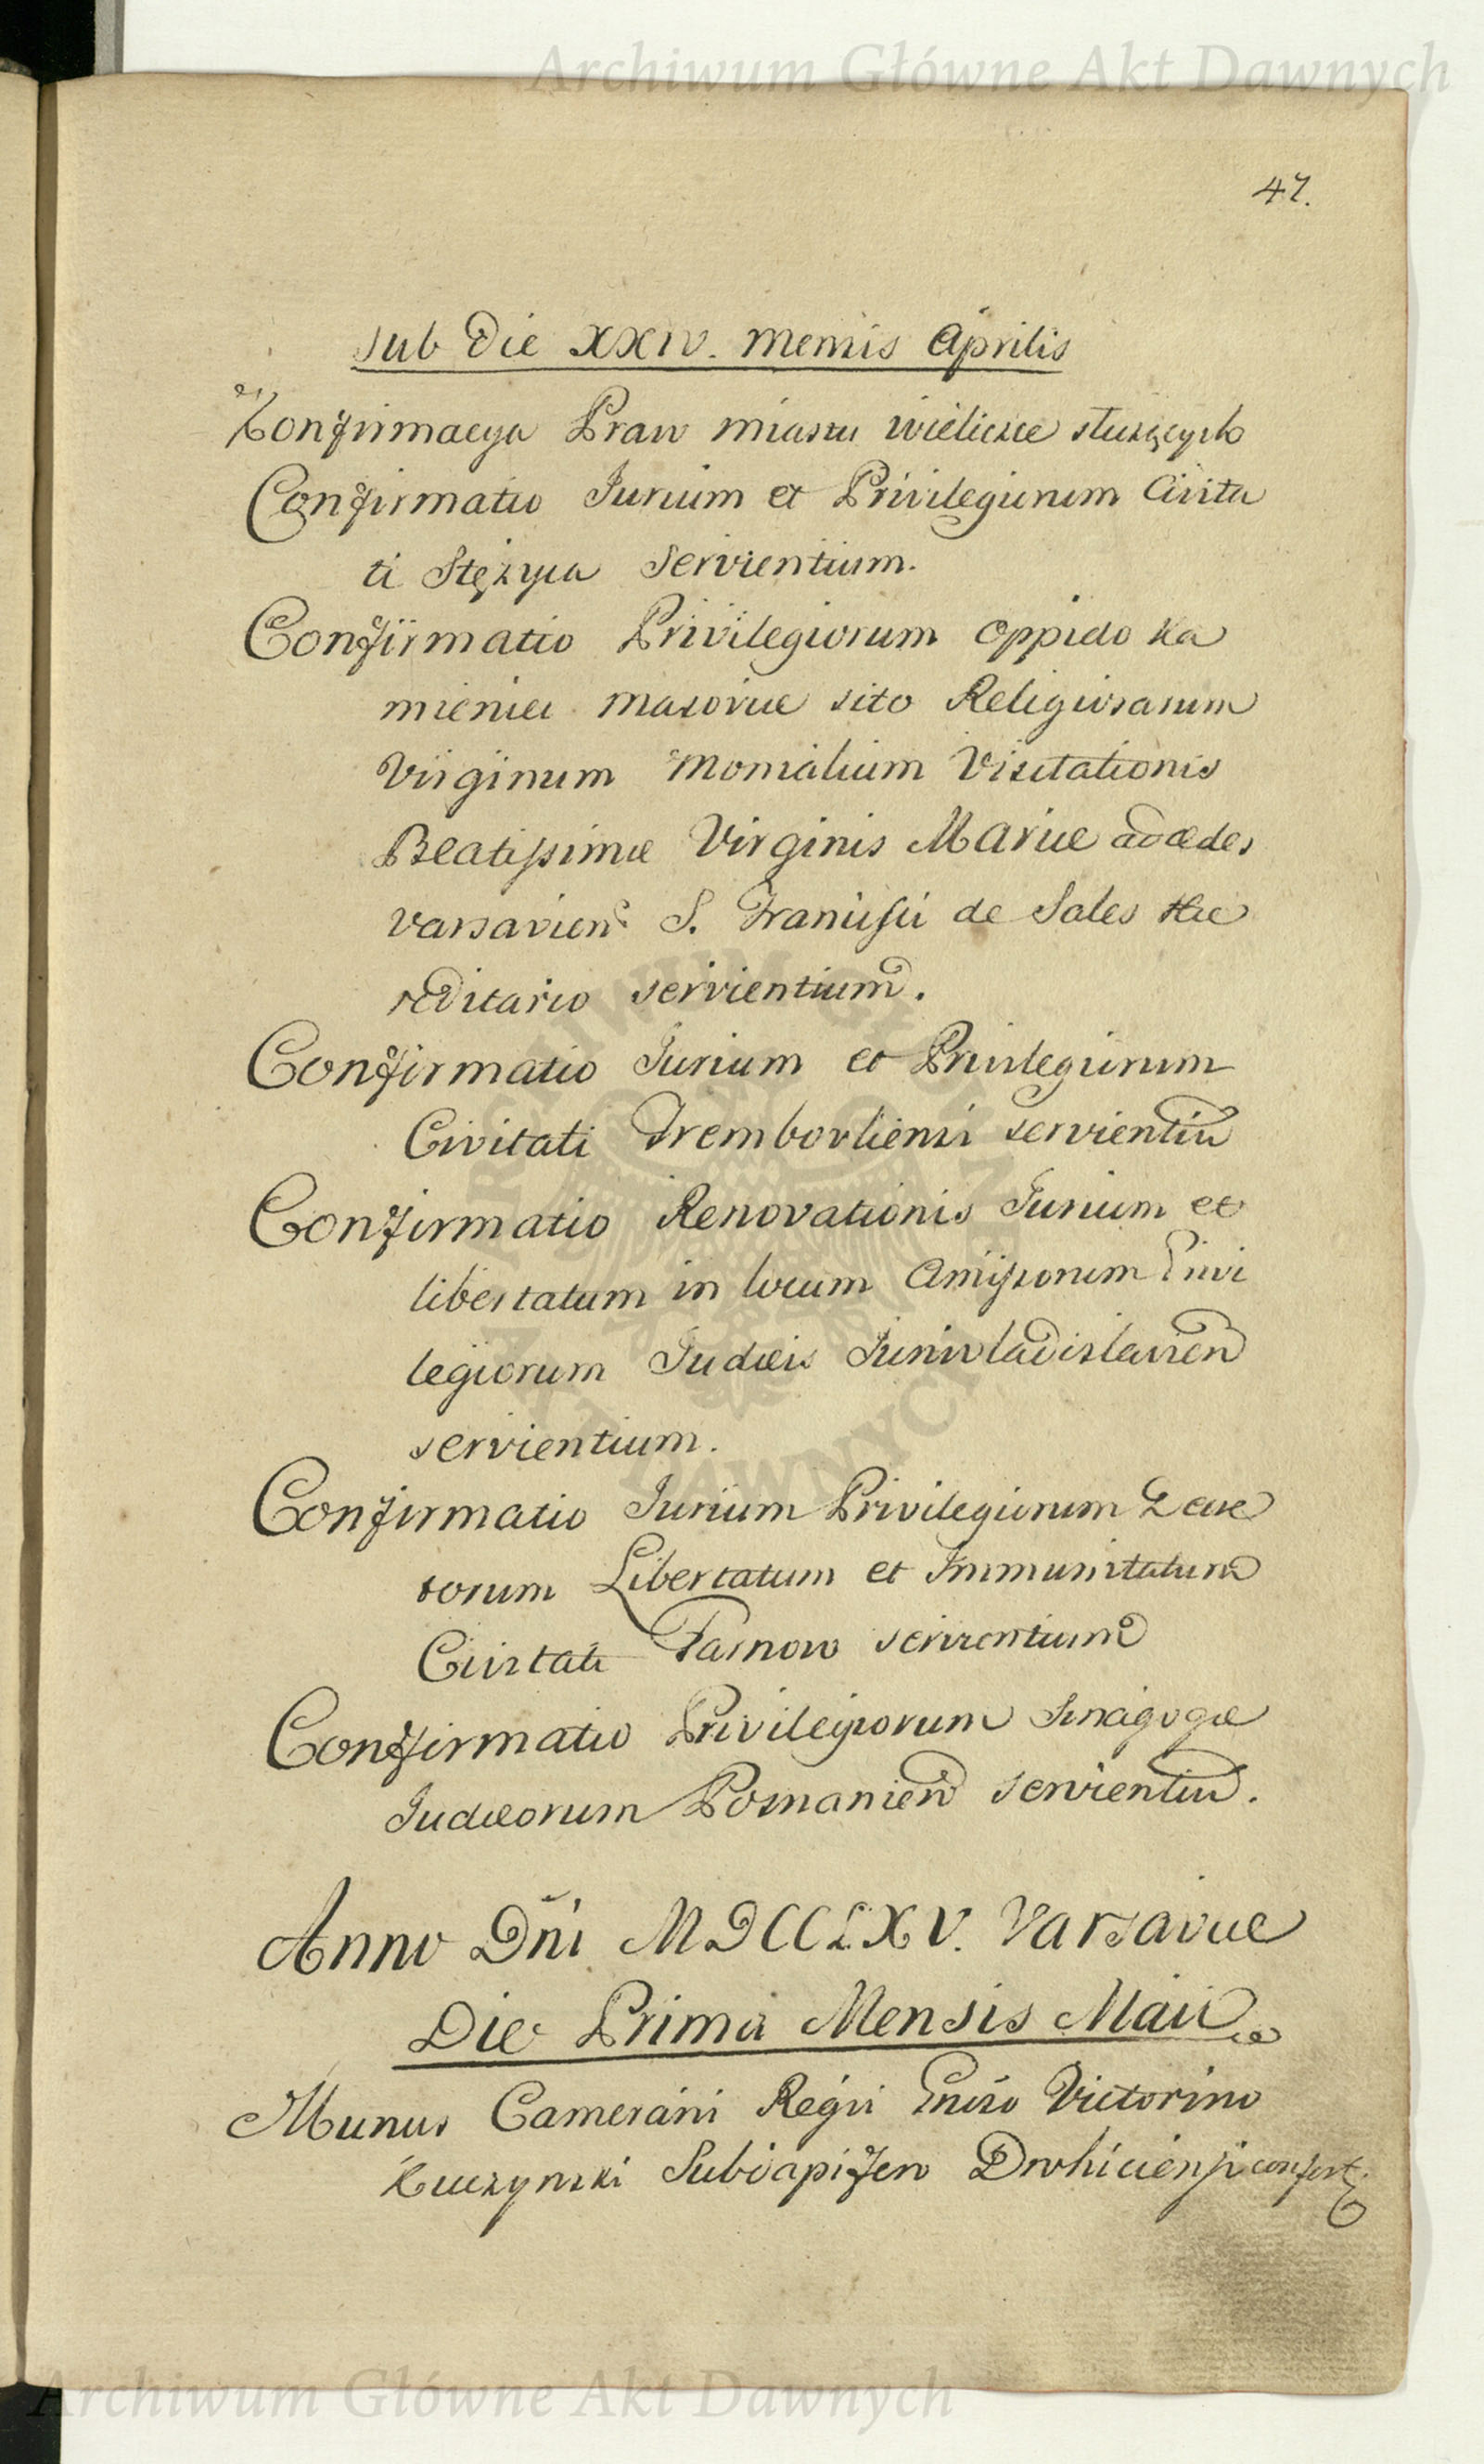 Archiwum Główne Akt Dawnych
47.
Sub Die XXIV. Mensis Aprilis
Konfirmacya Praw miastu Wieliczce służących
Confirmatio Jurium et Privilegiorum Civita
ti Stężyca Servientium.
Confirmatio Privilegiorum Oppido Ka
mieniec Masoviæ sito Religiosarum
Virginum Monialium Visitationis
Beatissimæ Virginis Mariæ ad ædes
Varsavien S. Francisci de Sales Hæ
reditario servientium.
Confirmatio Jurium et Privilegiorum
Civitati Trembovliensi servientiu
Confirmatio Renovationis Jurium et
libertatum in locum Amissorum Privi
legiorum Judæis Juniwladislavien
servientium.
Confirmatio Jurium Privilegiorum Decre
torum Libertatum et Immunitatum
Civitati Tarnow servientium
Confirmatio Privilegiorum Sinagogæ
Judæorum Posnanien servientiu.
Anno Dni MDCCLXV. Varsaviæ
Die Prima Mensis Maii
Munus Camerarii Regii Gnoso Victorino
Kuczynski Subdapifero Drohiciensi confert.
ARCHIWUM GŁÓWNE AKT DAWNYCH
Archiwum Główne Akt Dawnych